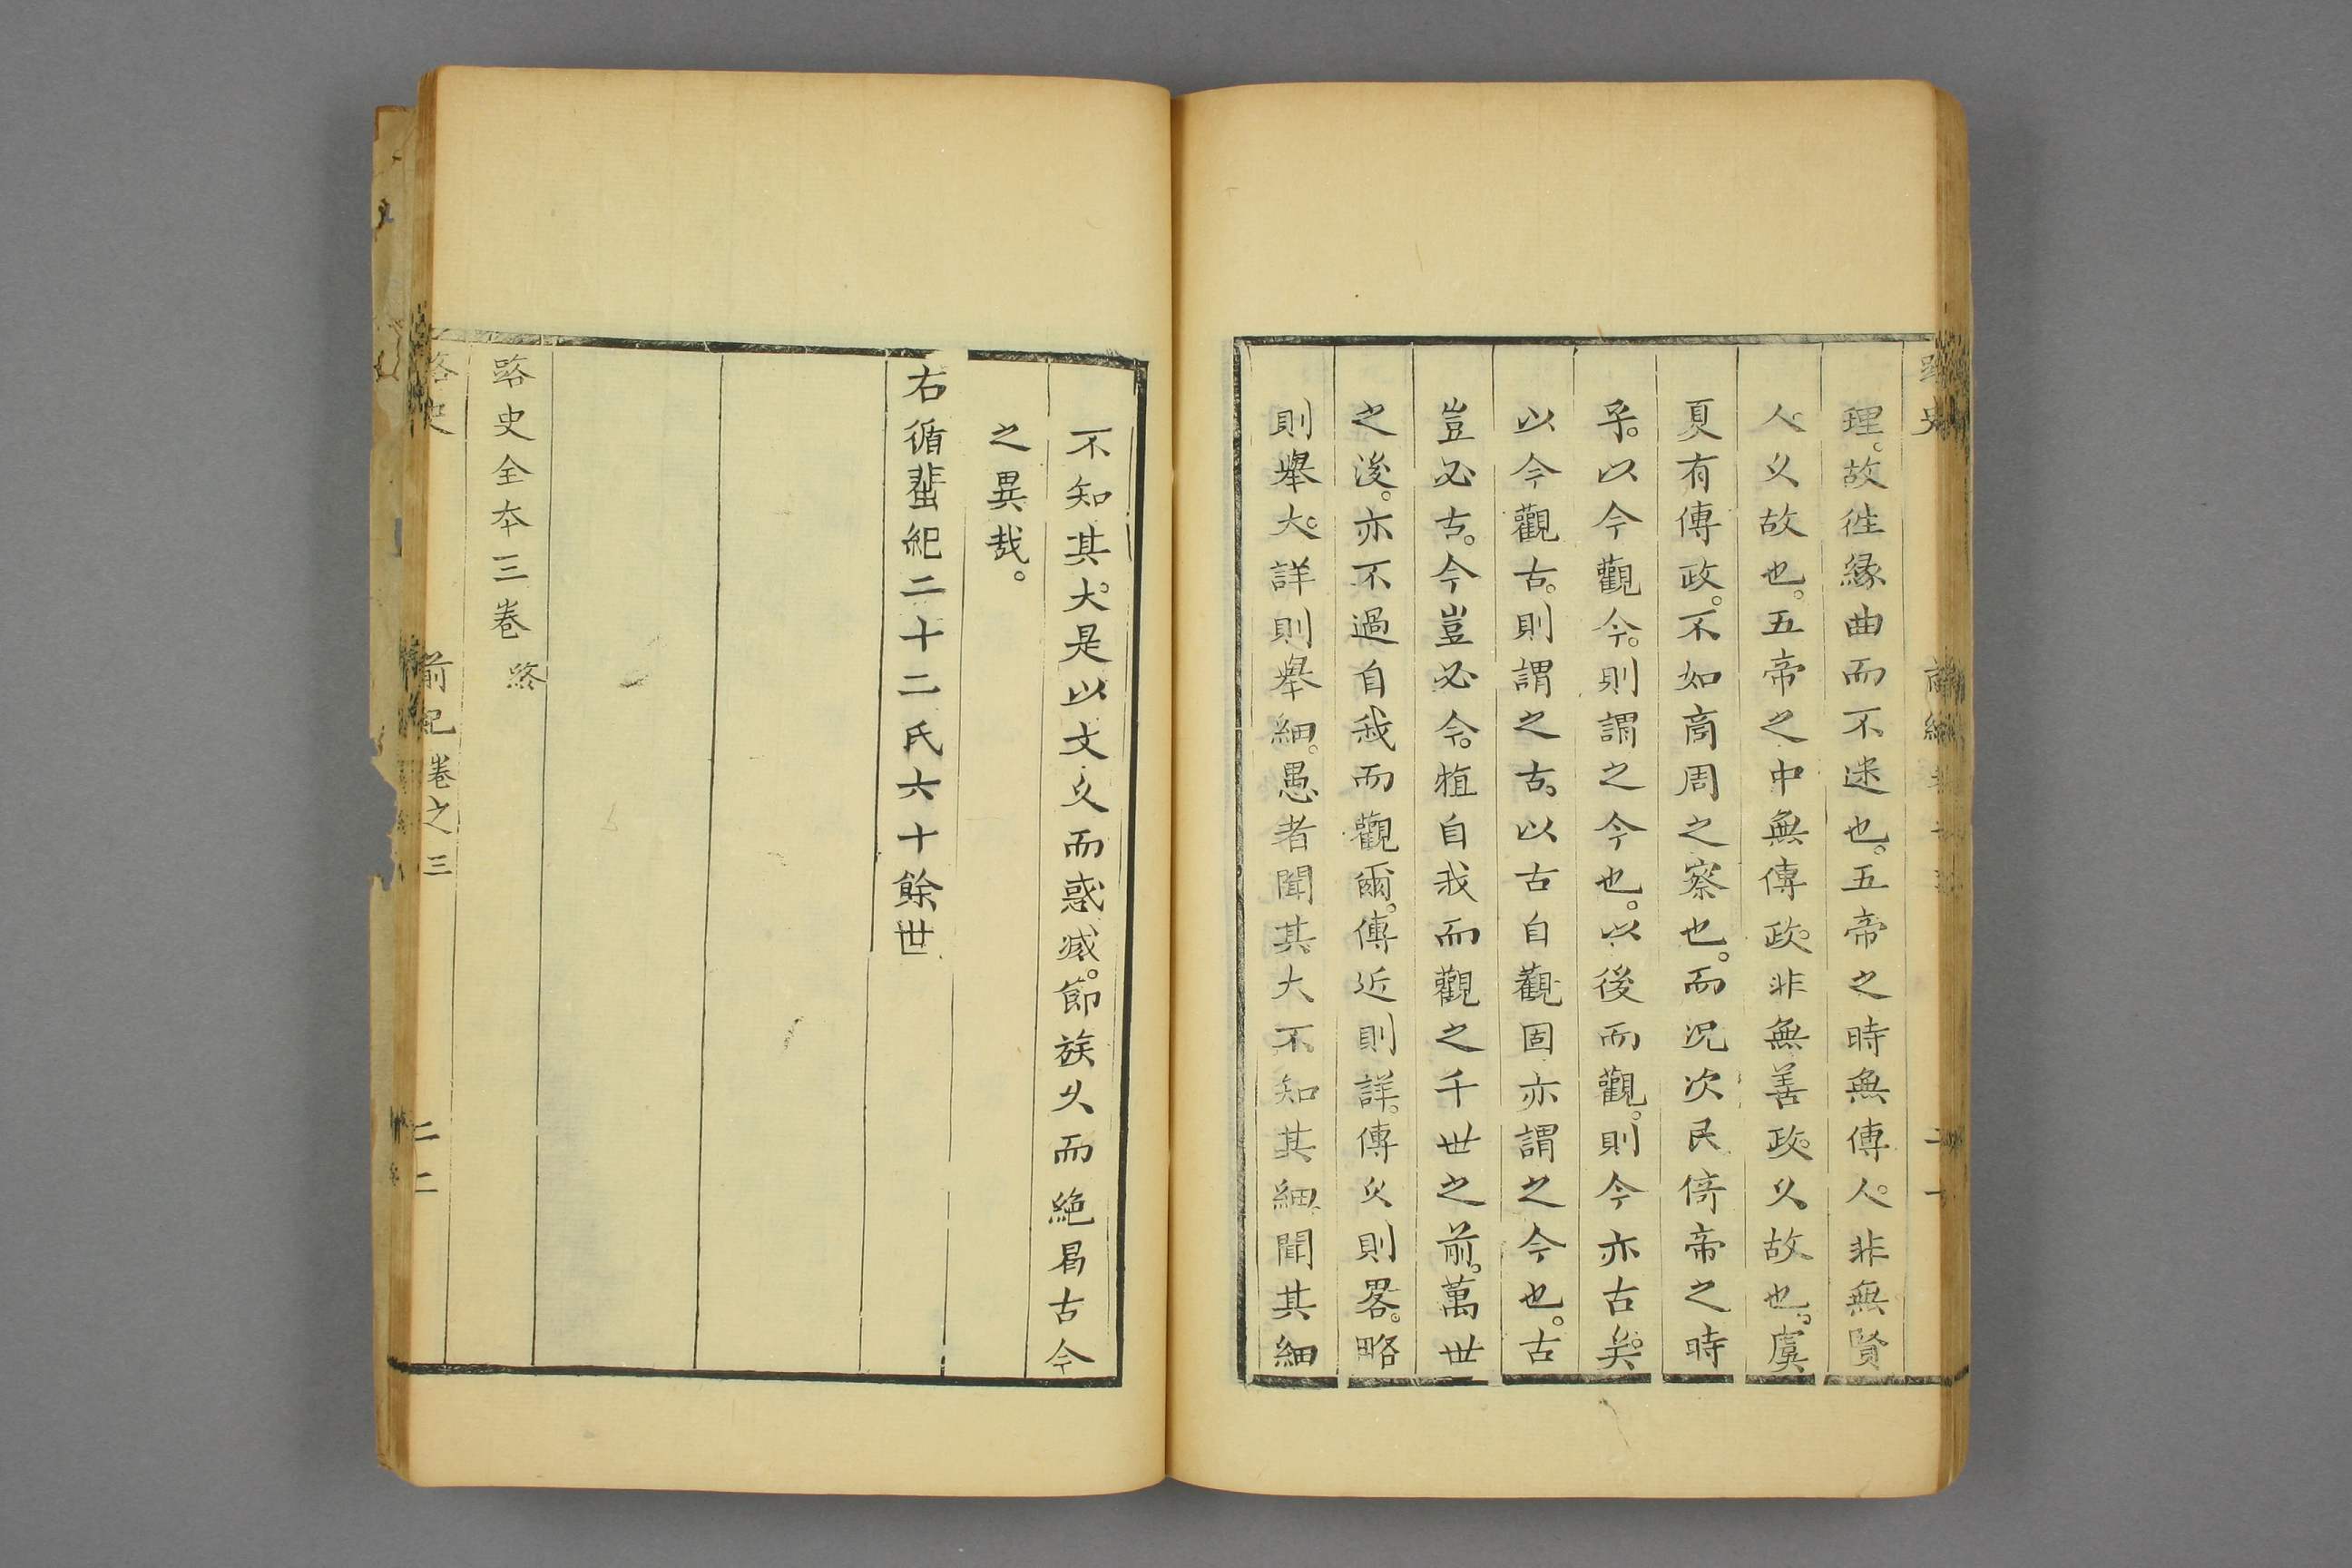 理。故徃縁曲而不迷也。五帝之時無傳人。非無賢
人。乆故也。五帝之中無傳政。非無善政。乆故也。虞
夏有傳政。不如商周之察也。而况次民倚帝之時
乎。以今觀今。則謂之今也。以後而觀。則今亦古矣。
以今觀古。則謂之古。以古自觀固亦謂之今也。古
豈必古。今豈必今。特自我而觀之千世之前。萬世
之後。亦不過自我而觀爾。傳近則詳。傳乆則畧。略
則舉大。詳則舉細。愚者聞其大不知其細。聞其細
不知其大。是以文乆而惑滅。節族乆而絶。曷古今
之異哉。
右循蜚紀二十二氏六十餘世
路史全本三卷 終
路史 前紀卷之三 二二